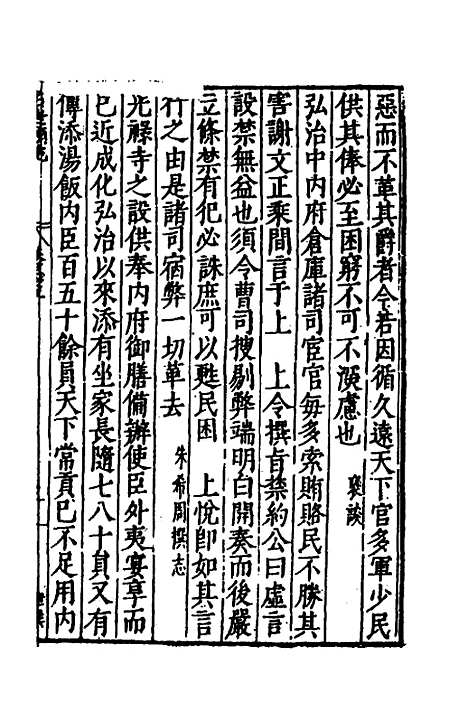 惡而不革其爵者令若因循久遠天下官多軍少民
供其俸必至困窮不可不湏慮也　褒談
弘治中内府倉庫諸司宦官每多索賄賂民不勝其
害謝文正乘間言于上　上令撰旨禁約公曰虛言
設禁無益也須令曹司搜剔弊端明白開奏而後嚴
立條禁有犯必誅庶可以甦民困　上悅卽如其言
行之由是諸司宿弊一切革去　朱希周撰志
光祿寺之設供奉内府御膳備辦使臣外夷宴享而
已近成化弘治以來添有坐家長隨七八十員又有
傳添湯飯内臣百五十餘員天下常貢已不足用内